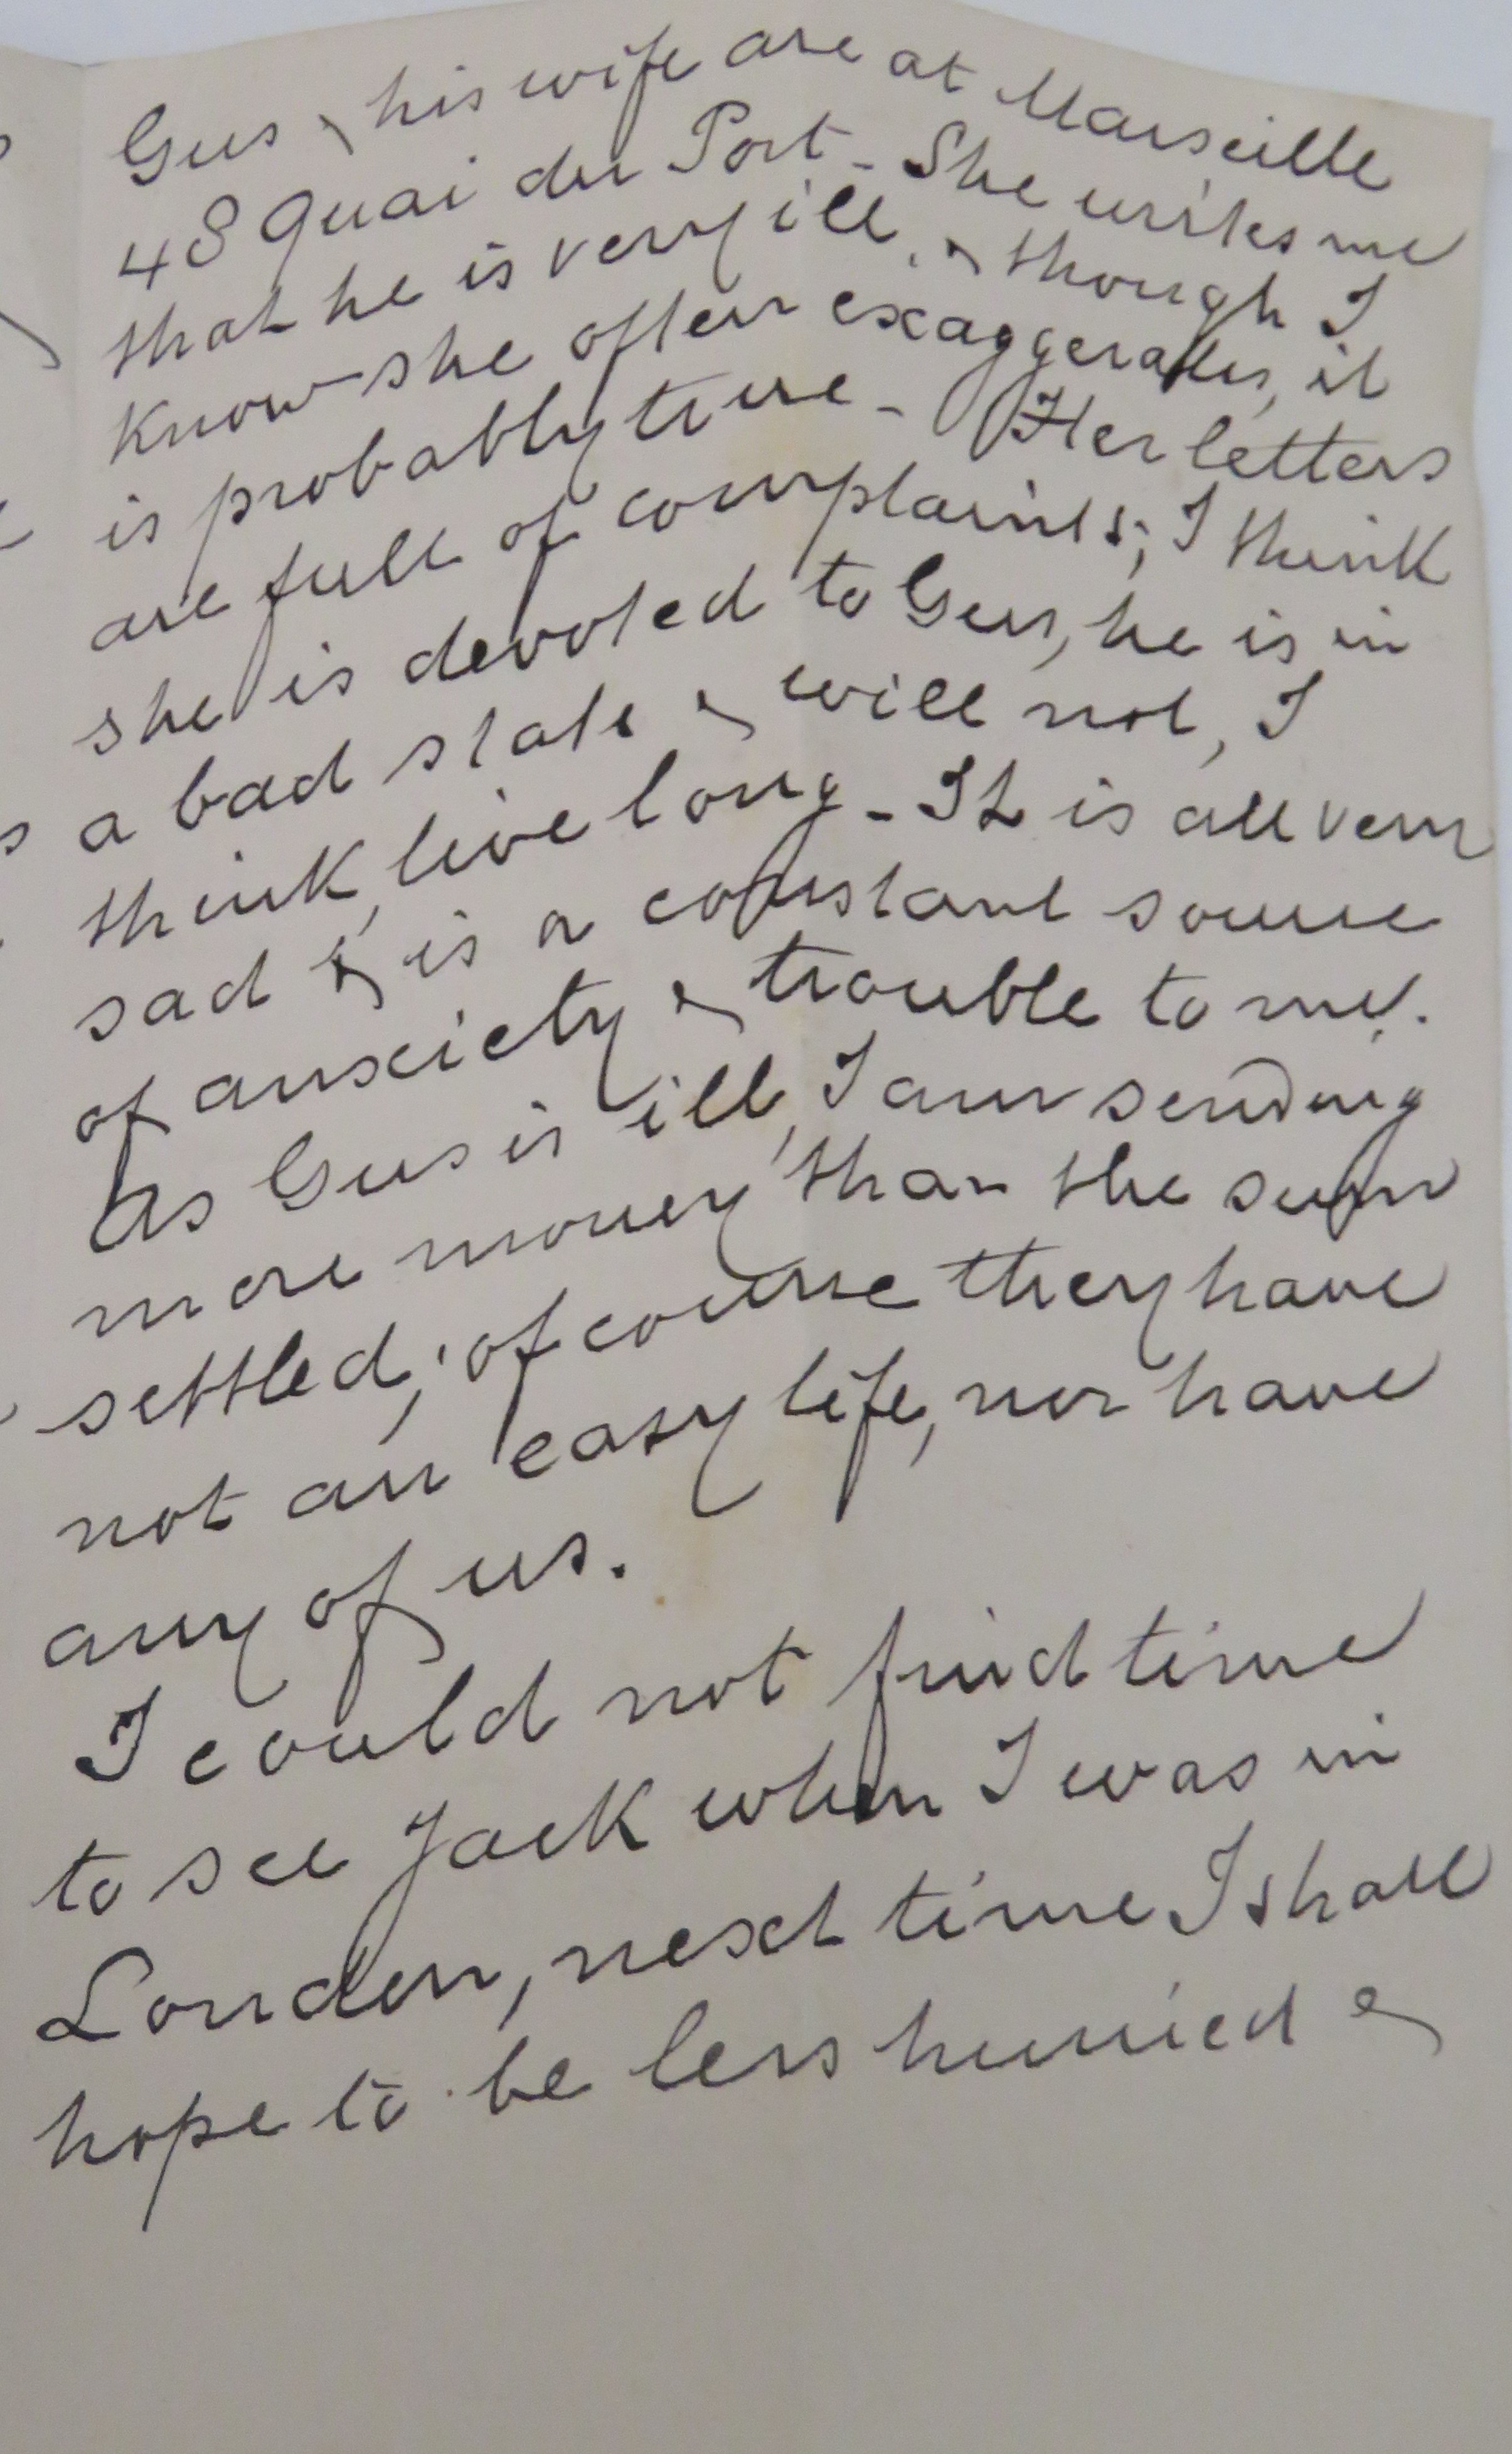 Gus & his wife are at Marseille
48 Quai du Port - She writes me
that he is very ill, & though I
know she often exaggerates, it
is probably true - Her letters
are full of complaints; I think
she is devoted to Gus, he is in
a bad state & will not, I
think, live long - It is all very
sad & is a constant source
of anxiety & trouble to me.
As Gus is ill, I am sending
more money than the sum
settled; of course they have
not an easy life, nor have
any of us.
I could not find time
to see Jack when I was in
London, next time I shall
hope to be less hurried &